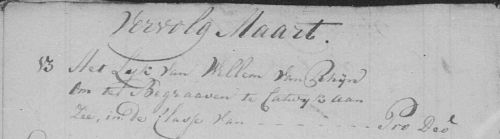 Vervolg Maart.
13 Het Lijk van Willem van Rhijn
om te Begraaven te Catwyk aan
Zee, in de Classe van - - - - - Pro Deo